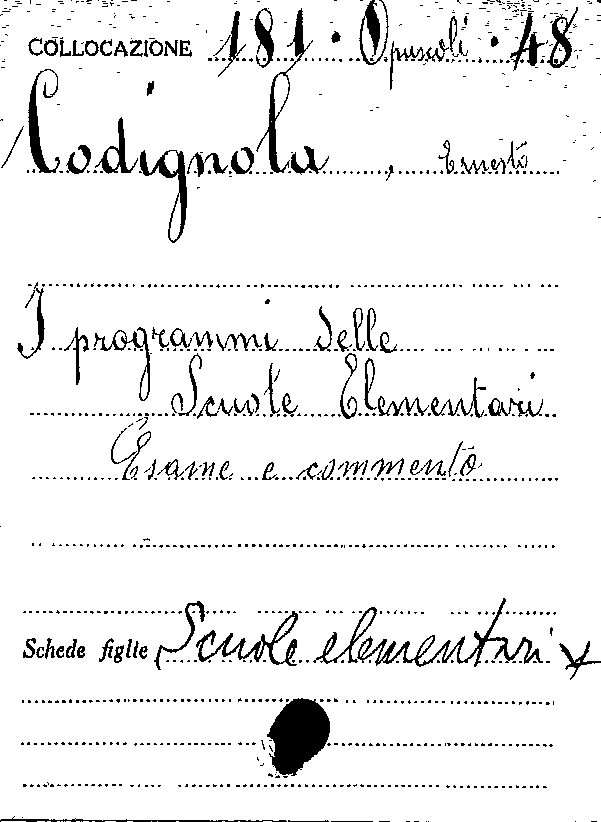 COLLOCAZIONE 181 · Opuscoli · 48
Codignola, Ernesto
I programmi delle
Scuole Elementari
Esame e commento
Schede figlie Scuole elementari